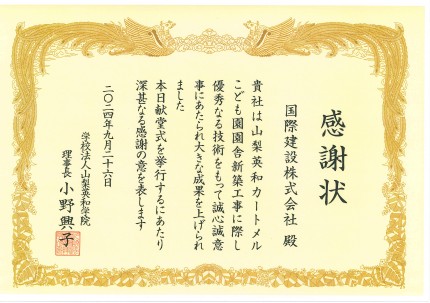 感謝状
国際建設株式会社 殿
貴社は山梨英和カートメル
こども園園舎新築工事に際し
優秀なる技術をもって誠心誠意
事にあたられ大きな成果を上げられ
ました
本日献堂式を挙行するにあたり
深甚なる感謝の意を表します
二〇二四年九月二十六日
学校法人山梨英和学院
理事長 小野興子